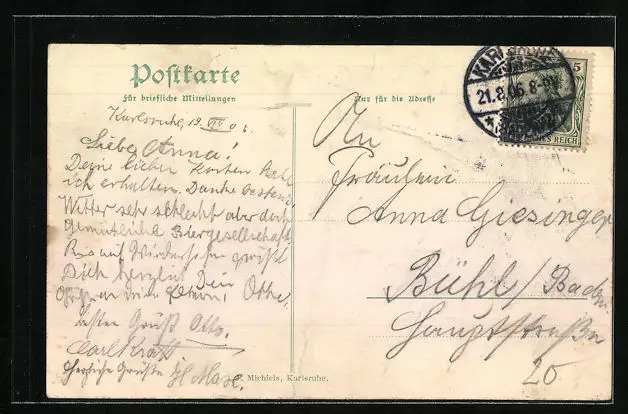 Postkarte
Für briefliche Mitteilungen
Nur für die Adresse
KARLSRUHE
21.8.06. 8-9
5
DEUTSCHES REICH
Karlsruhe, 19. VIII 06.
Liebe Anna!
Deine lieben Karten
ich erhalten. Danke bestens
Wetter sehr schlecht aber doch
Gemütliche Biergesellschaft.
auf Wiedersehen grüßt
Dich herzlich Dein
Otto.
besten Grüß Otto.
Carl Kratt
Herzliche Grüße
An
Fräulein
Anna Giesinger
Bühl/Baden
Hauptstraße
20
Michiels, Karlsruhe.